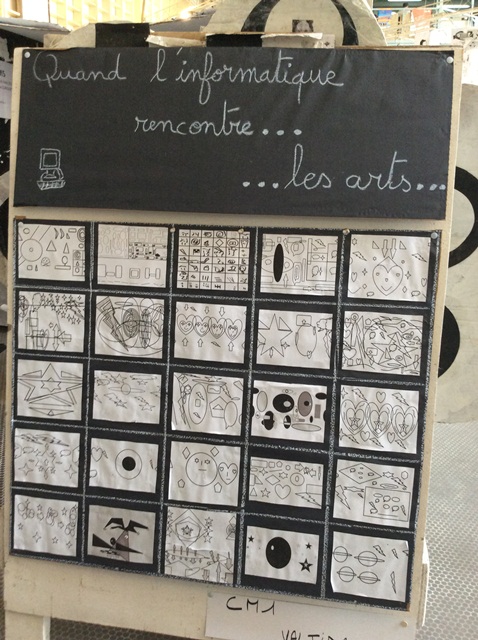 Quand l'informatique
rencontre...
...les arts...
CM1